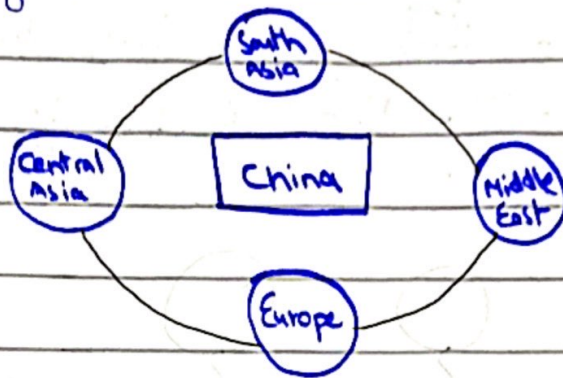 South
Asia
Central
Asia
China
Middle
East
Europe